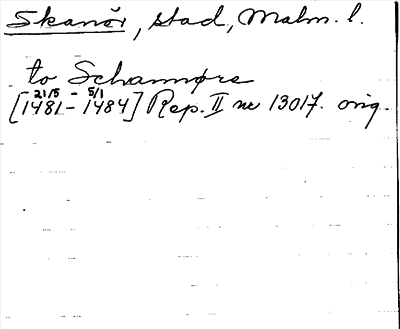 Skanör, stad, Malm. l.
to Schannøre
21/5 - 5/1
[1481-1484] Rep. II nr 13017. orig.